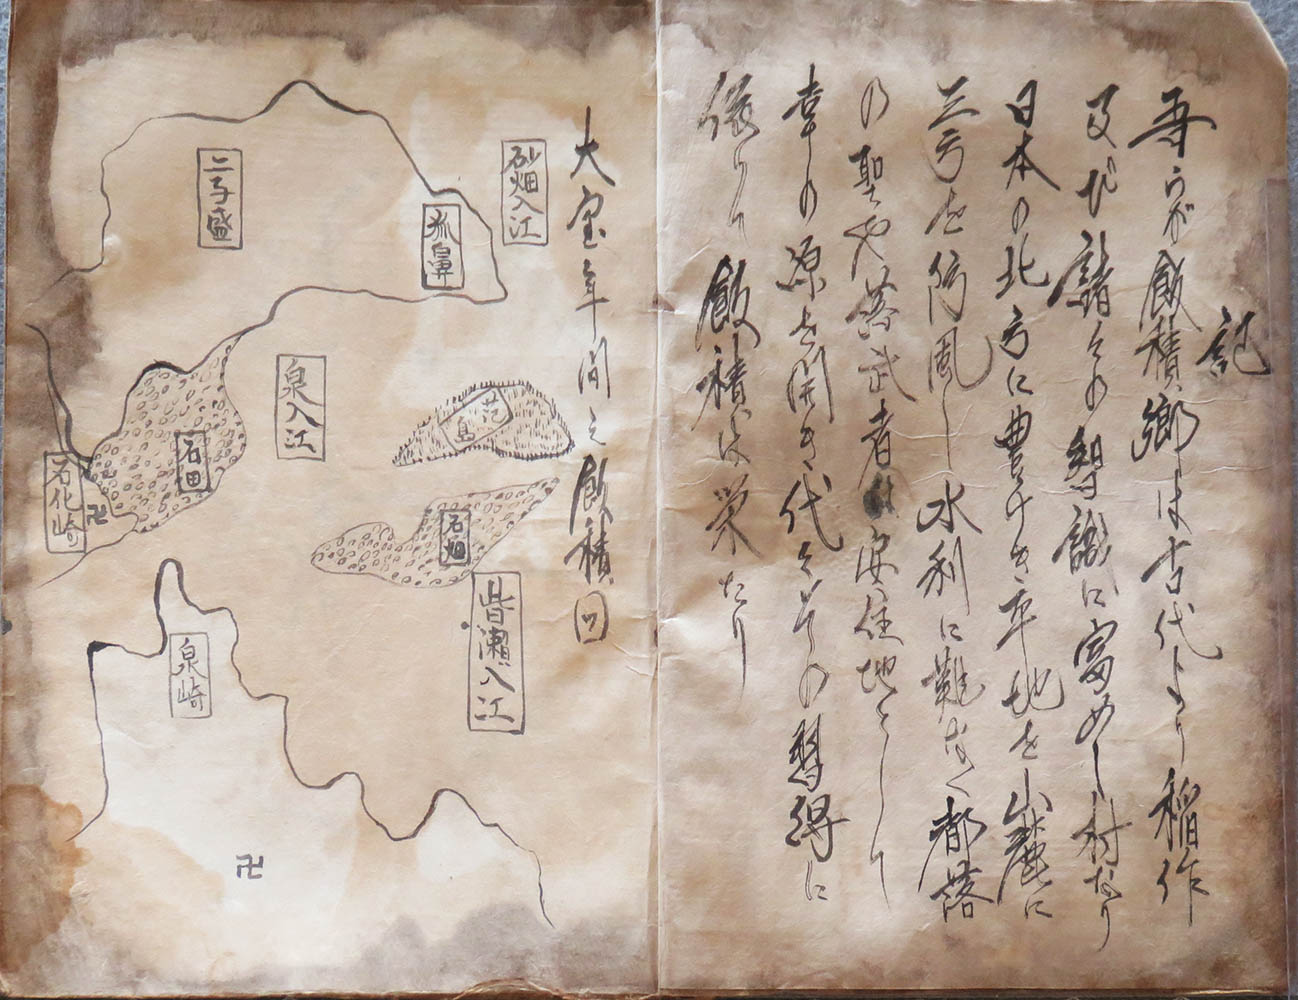 記
吾らが飯積郷は古代より稲作
及び諸々の智識に富めし村なり
日本の北方に豊けき平地を山麓に
三方を防風し水利に難なく都落
の聖や落武者 安住地として
幸の源を開き代々その習得に
依りて飯積は栄たり
大宝年間之飯積図
砂畑入江
狐鼻
二子盛
泉入江
島
石田
石化崎
卍
石畑
皆瀬入江
泉崎
卍